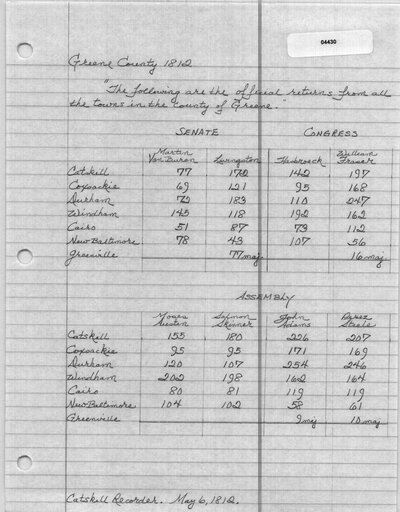 04430
Greene County 1812
"The following are the official returns from all
the towns in the county of Greene."
SENATE CONGRESS
Martin Van Buren Livingston Hasbroeck William Fraser
Catskill 77 172 142 197
Coxsackie 69 121 95 168
Durham 72 183 110 247
Windham 145 118 192 162
Cairo 51 87 73 112
New Baltimore 78 43 107 56
Greenville 77 maj. 16 maj.
ASSEMBLY
Moses Austin Salmon Skinner John Adams Perez Steele
Catskill 155 180 226 207
Coxsackie 95 95 171 169
Durham 120 107 254 246
Windham 202 198 162 164
Cairo 80 81 119 119
New Baltimore 104 102 58 61
Greenville 9 maj 10 maj
Catskill Recorder. May 6, 1812.